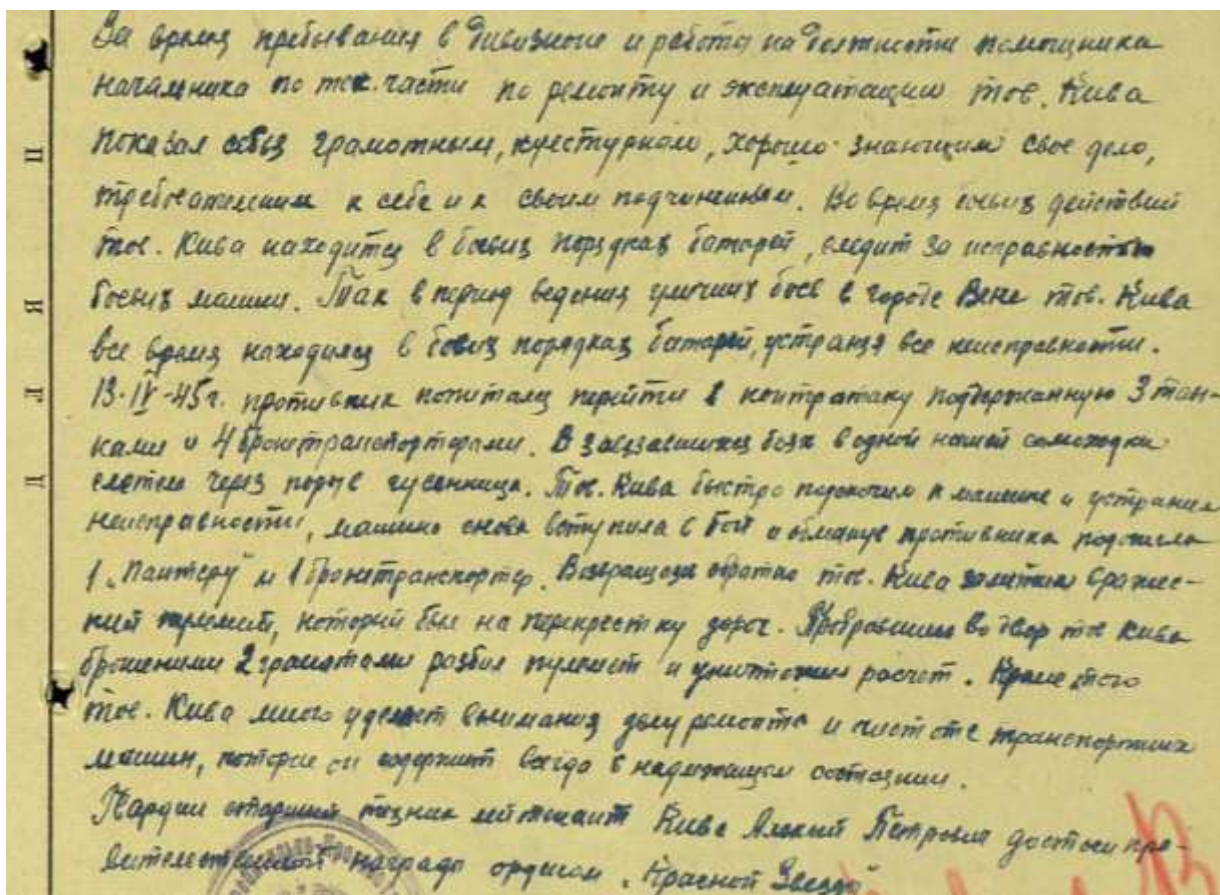 За время пребывания в дивизионе и работы на должности помощника
начальника по тех. части по ремонту и эксплуатации тов. Кива
показал себя грамотным, культурным, хорошо знающим свое дело,
требовательным к себе и к своим подчиненным. Во время боевых действий
тов. Кива находится в боевых порядках батарей, следит за исправностью
боевых машин. Так в период ведения уличных боев в городе Вене тов. Кива
все время находился в боевых порядках батарей, устраняя все неисправности.
13-IV-45г. противник попытался перейти в контратаку поддержанную 3 тан-
ками и 4 бронетранспортерами. В завязавшихся боях в одной нашей самоходки
слетела через порыв гусенница. Тов. Кива быстро подскочил к машине и устранил
неисправности, машина снова вступила в бой и обманув противника подожгла
1 „Пантеру" и 1 бронетранспортер. Возвращаясь обратно тов. Кива заметил вражес-
кий пулемет, который был на перекрестку дорог. Пробравшись во двор тов Кива
брошенными 2 гранатами разбил пулемет и уничтожил расчет. Кроме того
тов. Кива много уделяет внимания делу ремонта и чистоте транспортных
машин, которые он содержит всегда в надлежащем состоянии.
Гвардии старший техник лейтенант Кива Петрович достоин пра-
вительственной награды орденом „Красной Звезды"
П
В
Г
Д